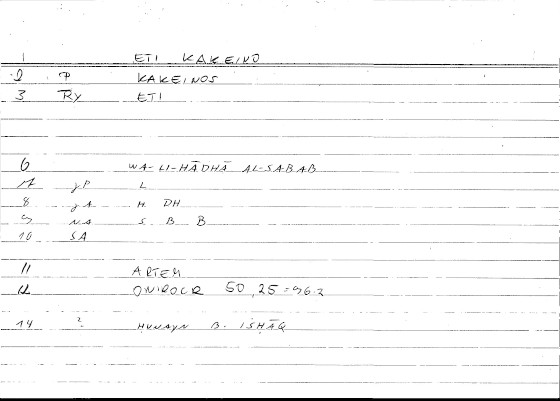 1 ETI KAKEINO
2 P KAKEINOS
3 Ry ETI
6 WA-LI-HĀDHĀ AL-SABAB
jP L
8 jA H DH
9 NA S B B
10 SA
11 ARTEM
12 ONIROCR 50,25 = 96.2
14 ? HUNAYN B. ISHĀQ